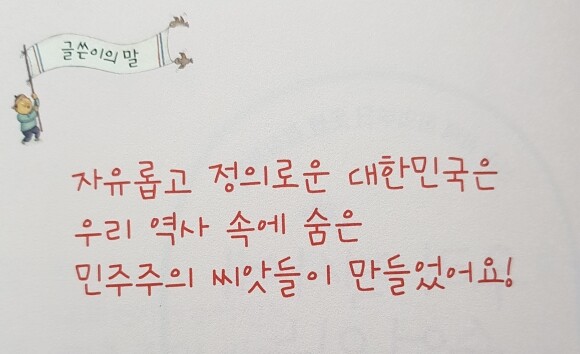 글쓴이의 말
자유롭고 정의로운 대한민국은
우리 역사 속에 숨은
민주주의 씨앗들이 만들었어요!